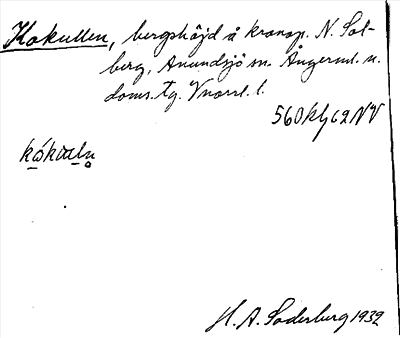 Kokullen, bergshöjd å kronop. N. Sol-
berg, Anundsjö sn. Ångerml. n.
doms. tg. Vnorrl. l.
560 kbf 62 NV
H. A. Söderberg 1932